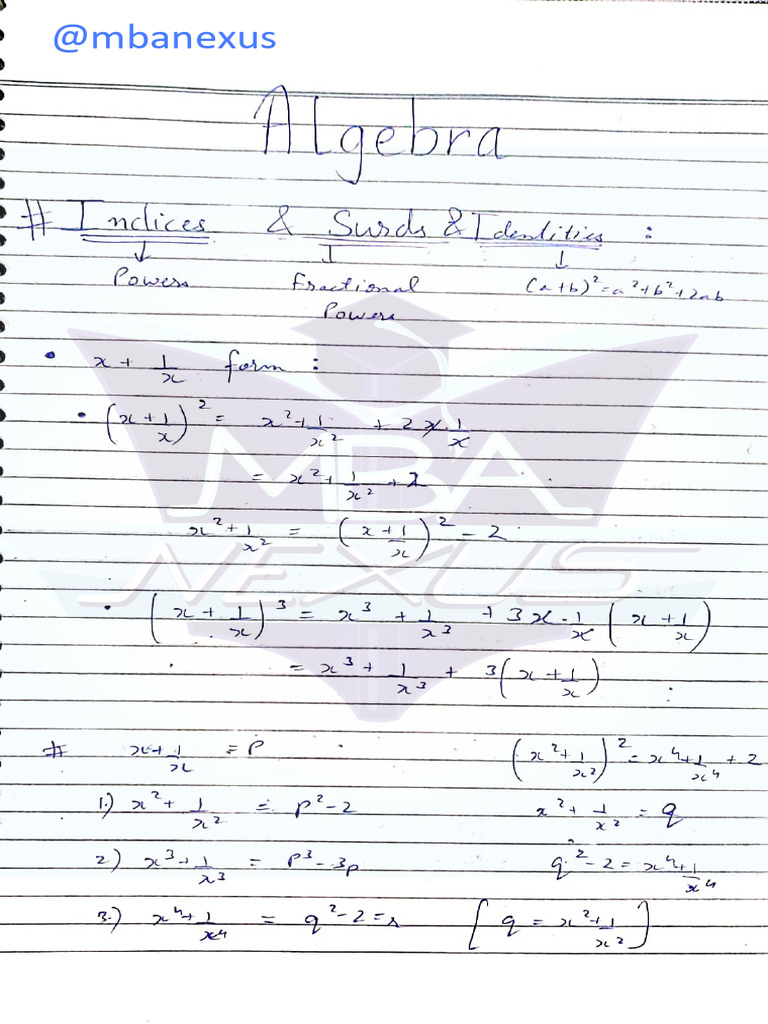 @mbanexus
Algebra
# Indices & Surds & Identities :
↓ ↓ ↓
Powers Fractional Powers (a+b)² = a²+b²+2ab
• x + 1/x form :
• (x + 1/x)² = x² + 1/x² + 2x·1/x
= x² + 1/x² + 2
x² + 1/x² = (x + 1/x)² - 2
• (x + 1/x)³ = x³ + 1/x³ + 3x·1/x (x + 1/x)
= x³ + 1/x³ + 3(x + 1/x)
# x + 1/x = P (x² + 1/x²)² = x⁴ + 1/x⁴ + 2
1.) x² + 1/x² = P² - 2 x² + 1/x² = q
2) x³ + 1/x³ = P³ - 3p q² - 2 = x⁴ + 1/x⁴
3.) x⁴ + 1/x⁴ = q² - 2 = s [q = x² + 1/x²]
MBA
NEXUS